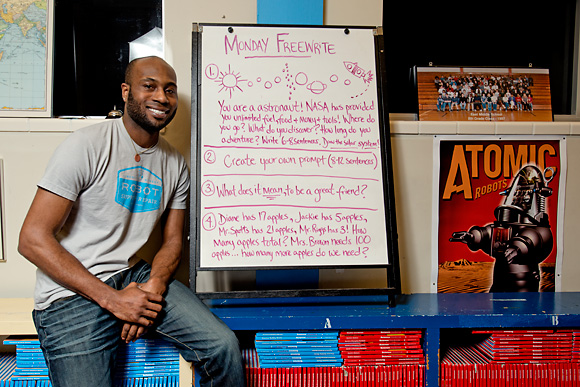 MONDAY FREEWRITE
1.
You are a astronaut! NASA has provided
you unlimited fuel, food + money + tools! Where do
you go? What do you discover? How long do you
adventure? Write 6-8 sentences, Draw the solar system!
2 Create your own prompt (8-12 sentences)
3 What does it mean to be a great friend?
4 Diane has 17 apples, Jackie has 5 apples,
Mr. Spotts has 21 apples, Mr. Ripp has 3! How
many apples total? Mrs. Brown needs 100
apples... how many more apples do we need?
ROBOT
ATOMIC
ROBOTS
A
B